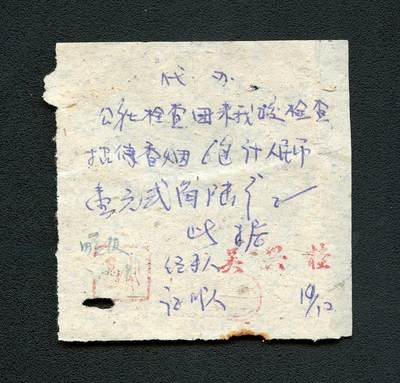 代办
公社检查团来我校检查
招待香烟6包计人民币
壹元贰角陆分
此据
经手人 吴兴柱
证明人 19/12